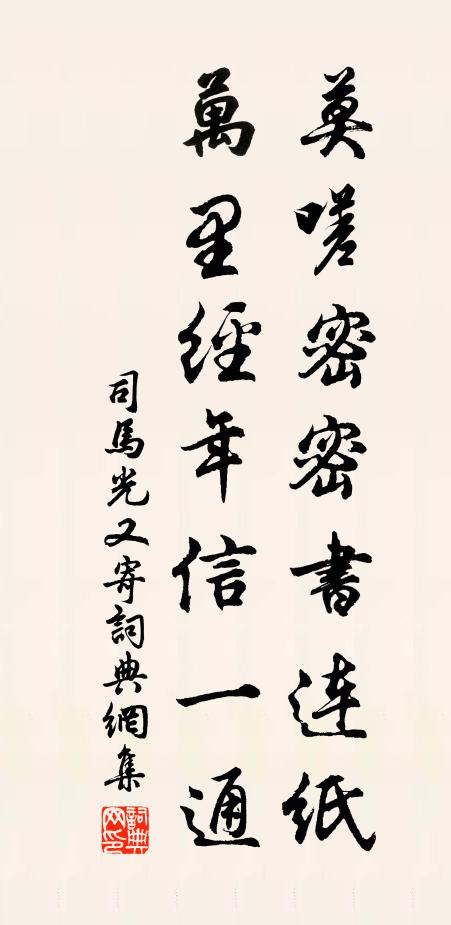 莫嗟密密書連紙
萬里經年信一通
司馬光又寄詞典網集
詞典網印